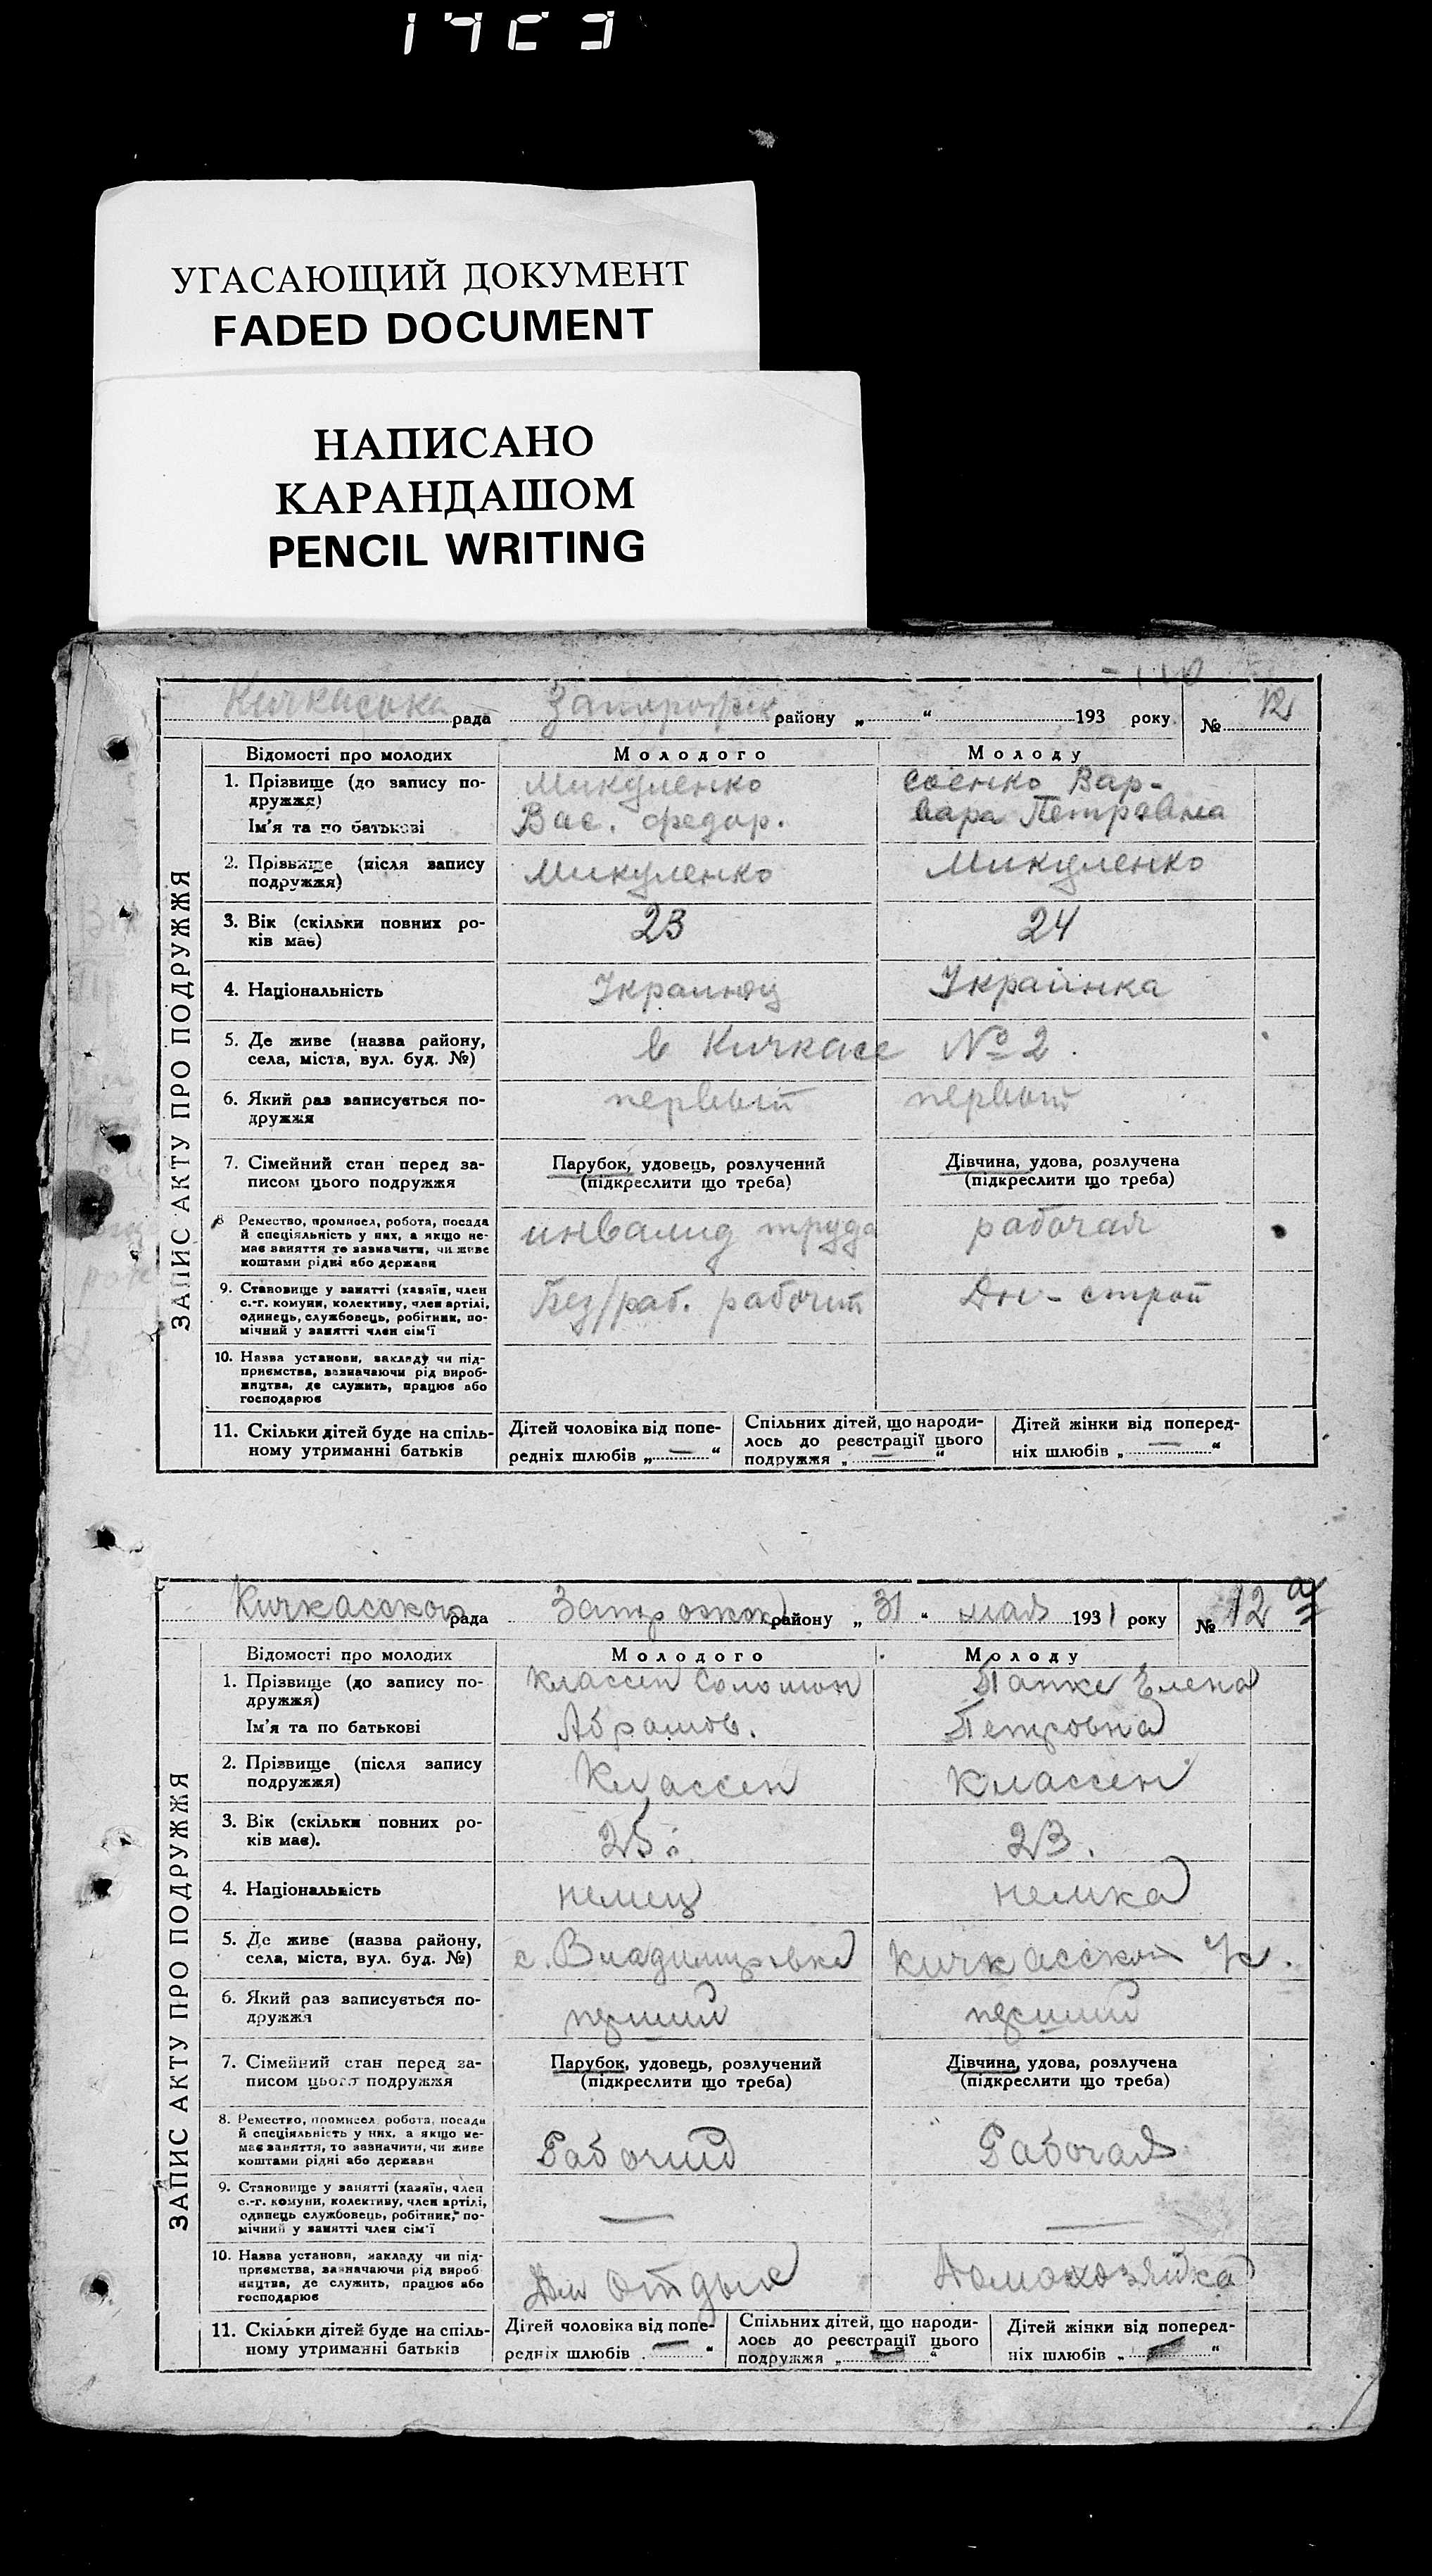 УГАСАЮЩИЙ ДОКУМЕНТ
FADED DOCUMENT
НАПИСАНО
КАРАНДАШОМ
PENCIL WRITING
Кичкаська рада Запорожск району „ “ 193 року № 12
ЗАПИС АКТУ ПРО ПОДРУЖЖЯ
Відомості про молодих Молодого Молоду
1. Прізвище (до запису по-
дружжя)
Ім'я та по батькові
Микуленко
Вас. Федор.
Соенко Вар-
вара Петровна
2. Прізвище (після запису
подружжя)
Микуленко Микуленко
3. Вік (скільки повних ро-
ків має)
23 24
4. Національність Украинец Украинка
5. Де живе (назва району,
села, міста, вул. буд. №)
в Кичкасе № 2.
6. Який раз записується по-
дружжя
первый первый
7. Сімейний стан перед за-
писом цього подружжя
Парубок, удовець, розлучений
(підкреслити що треба)
Дівчина, удова, розлучена
(підкреслити що треба)
8 Ремество, промисел, робота, посада
й спеціяльність у них, а якщо не-
має заняття то зазначити, чи живе
коштами рідні або держави
инвалид труда рабочая
9. Становище у занятті (хазяїн, член
с.-г. комуни, колективу, член артілі,
одинець, службовець, робітник, по-
мічний у занятті член сім'ї
Без/раб. рабочий Дн-строй
10. Назва установи, закладу чи під-
приємства, зазначаючи рід вироб-
ництва, де служить, працює або
господарює
11. Скільки дітей буде на спіль-
ному утриманні батьків
Дітей чоловіка від попе-
редніх шлюбів „ — “
Спільних дітей, що народи-
лось до реєстрації цього
подружжя „ — “
Дітей жінки від поперед-
ніх шлюбів „ — “
Кичкасской рада Запорожск району „ 31 “ мая 1931 року № 12 а
ЗАПИС АКТУ ПРО ПОДРУЖЖЯ
Відомості про молодих Молодого Молоду
1. Прізвище (до запису по-
дружжя)
Ім'я та по батькові
Классен Соломон
Абрамов.
Панке Елена
Петровна
2. Прізвище (після запису
подружжя)
Классен Классен
3. Вік (скільки повних ро-
ків має).
25 23.
4. Національність немец немка
5. Де живе (назва району,
села, міста, вул. буд. №)
с. Владимировка Кичкасской
6. Який раз записується по-
дружжя
перший перший
7. Сімейний стан перед за-
писом цього подружжя
Парубок, удовець, розлучений
(підкреслити що треба)
Дівчина, удова, розлучена
(підкреслити що треба)
8. Ремество, промисел, робота, посада
й спеціяльність у них, а якщо не-
має заняття, то зазначити, чи живе
коштами рідні або держави
Рабочий Рабочая
9. Становище у занятті (хазяїн, член
с.-г. комуни, колективу, член артілі,
одинець службовець, робітник, по-
мічний у занятті член сім'ї
— —
10. Назва установи, закладу чи під-
приємства, зазначаючи рід вироб
ництва, де служить, працює або
господарює
Дом отдыха Домохозяйка
11. Скільки дітей буде на спіль-
ному утриманні батьків
Дітей чоловіка від попе-
редніх шлюбів — “
Спільних дітей, що народи-
лось до реєстрації цього
подружжя „ — “
Дітей жінки від поперед-
ніх шлюбів „ — “